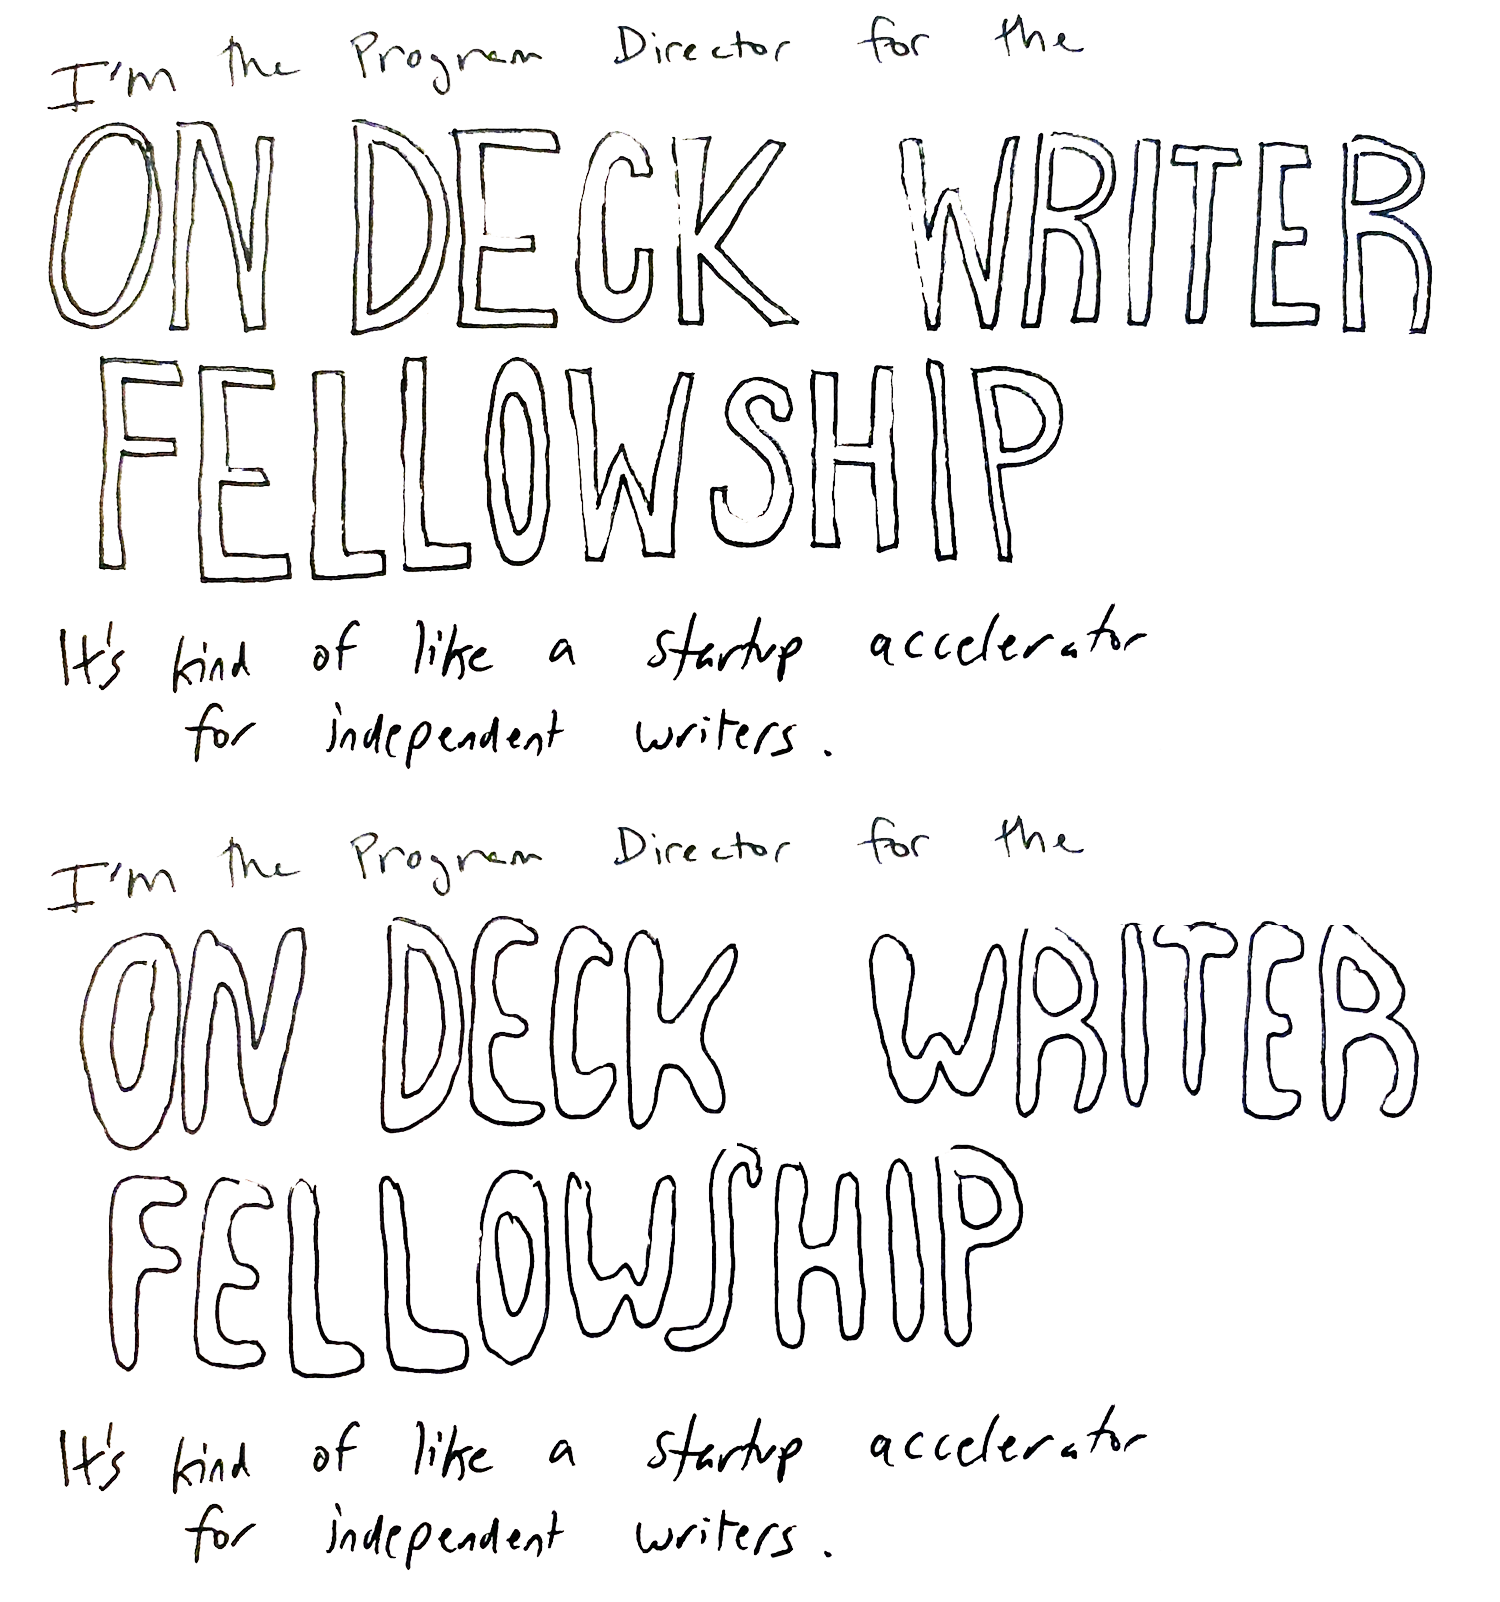 I'm the Program Director for the
ON DECK WRITER
FELLOWSHIP
It's kind of like a startup accelerator
for independent writers.
I'm the Program Director for the
ON DECK WRITER
FELLOWSHIP
It's kind of like a startup accelerator
for independent writers.